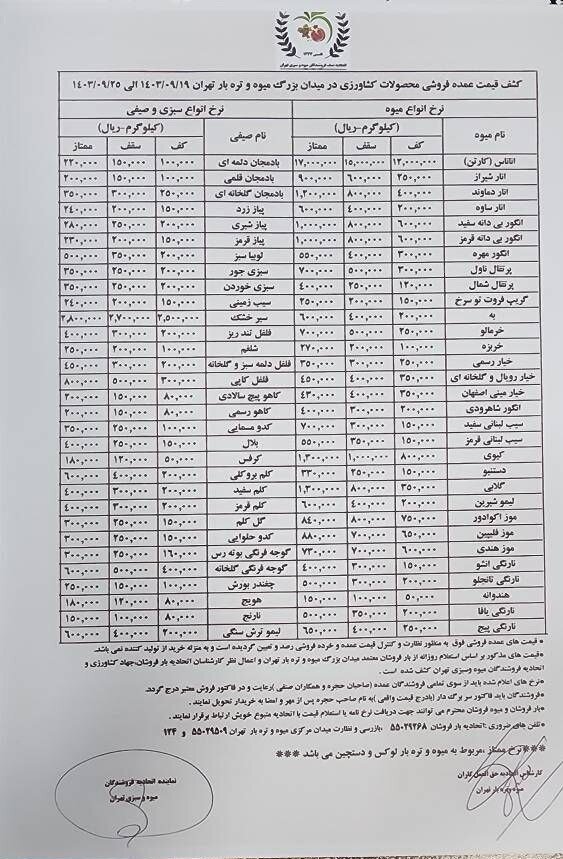 اتحادیه صنف فروشندگان میوه و سبزی تهران
کشف قیمت عمده فروشی محصولات کشاورزی در میدان بزرگ میوه و تره بار تهران ۱۴۰۳/۰۹/۱۹ الی ۱۴۰۳/۰۹/۲۵
نرخ انواع میوه نرخ انواع سبزی و صیفی
نام میوه (کیلوگرم-ریال) نام صیفی (کیلوگرم-ریال)
کف سقف ممتاز کف سقف ممتاز
آناناس (کارتن) ۱۲,۰۰۰,۰۰۰ ۱۵,۰۰۰,۰۰۰ ۱۷,۰۰۰,۰۰۰ بادمجان دلمه ای ۱۰۰,۰۰۰ ۱۵۰,۰۰۰ ۲۲۰,۰۰۰
انار شیراز ۲۵۰,۰۰۰ ۶۰۰,۰۰۰ ۹۰۰,۰۰۰ بادمجان قلمی ۱۰۰,۰۰۰ ۱۵۰,۰۰۰ ۲۰۰,۰۰۰
انار دماوند ۴۰۰,۰۰۰ ۸۰۰,۰۰۰ ۱,۲۰۰,۰۰۰ بادمجان گلخانه ای ۲۵۰,۰۰۰ ۳۰۰,۰۰۰ ۳۵۰,۰۰۰
انار ساوه ۲۰۰,۰۰۰ ۴۰۰,۰۰۰ ۶۰۰,۰۰۰ پیاز زرد ۱۵۰,۰۰۰ ۲۰۰,۰۰۰ ۲۴۰,۰۰۰
انگور بی دانه سفید ۶۰۰,۰۰۰ ۸۰۰,۰۰۰ ۱,۰۰۰,۰۰۰ پیاز شیری ۲۰۰,۰۰۰ ۲۵۰,۰۰۰ ۲۸۰,۰۰۰
انگور بی دانه قرمز ۶۰۰,۰۰۰ ۸۰۰,۰۰۰ ۱,۰۰۰,۰۰۰ پیاز قرمز ۱۵۰,۰۰۰ ۲۰۰,۰۰۰ ۲۳۰,۰۰۰
انگور مهره ۳۰۰,۰۰۰ ۴۰۰,۰۰۰ ۵۵۰,۰۰۰ لوبیا سبز ۲۰۰,۰۰۰ ۳۵۰,۰۰۰ ۵۰۰,۰۰۰
پرتقال ناول ۳۰۰,۰۰۰ ۵۰۰,۰۰۰ ۷۰۰,۰۰۰ سبزی جور ۲۰۰,۰۰۰ ۲۵۰,۰۰۰ ۳۵۰,۰۰۰
پرتقال شمال ۱۲۰,۰۰۰ ۲۵۰,۰۰۰ ۴۰۰,۰۰۰ سبزی خوردن ۲۰۰,۰۰۰ ۲۵۰,۰۰۰ ۳۵۰,۰۰۰
گریپ فروت تو سرخ ۱۵۰,۰۰۰ ۲۰۰,۰۰۰ ۲۵۰,۰۰۰ سیب زمینی ۱۵۰,۰۰۰ ۲۰۰,۰۰۰ ۲۴۰,۰۰۰
به ۲۰۰,۰۰۰ ۴۰۰,۰۰۰ ۶۰۰,۰۰۰ سیر خشک ۲,۵۰۰,۰۰۰ ۲,۷۰۰,۰۰۰ ۲,۸۰۰,۰۰۰
خرمالو ۲۵۰,۰۰۰ ۵۰۰,۰۰۰ ۷۰۰,۰۰۰ فلفل تند ریز ۲۰۰,۰۰۰ ۳۰۰,۰۰۰ ۴۰۰,۰۰۰
خربزه ۱۰۰,۰۰۰ ۲۰۰,۰۰۰ ۲۷۰,۰۰۰ شلغم ۱۰۰,۰۰۰ ۲۰۰,۰۰۰ ۲۵۰,۰۰۰
خیار رسمی ۲۵۰,۰۰۰ ۳۰۰,۰۰۰ ۳۵۰,۰۰۰ فلفل دلمه سبز و گلخانه ۲۰۰,۰۰۰ ۳۰۰,۰۰۰ ۴۵۰,۰۰۰
خیار رویال و گلخانه ای ۳۵۰,۰۰۰ ۴۰۰,۰۰۰ ۴۵۰,۰۰۰ فلفل کاپی ۳۰۰,۰۰۰ ۵۰۰,۰۰۰ ۸۰۰,۰۰۰
خیار مینی اصفهان ۳۵۰,۰۰۰ ۴۰۰,۰۰۰ ۴۳۰,۰۰۰ کاهو پیچ سالادی ۸۰,۰۰۰ ۱۵۰,۰۰۰ ۲۰۰,۰۰۰
انگور شاهرودی ۲۰۰,۰۰۰ ۳۰۰,۰۰۰ ۴۰۰,۰۰۰ کاهو رسمی ۸۰,۰۰۰ ۱۵۰,۰۰۰ ۲۰۰,۰۰۰
سیب لبنانی سفید ۱۵۰,۰۰۰ ۳۰۰,۰۰۰ ۷۰۰,۰۰۰ کدو مسمایی ۱۰۰,۰۰۰ ۲۵۰,۰۰۰ ۳۵۰,۰۰۰
سیب لبنانی قرمز ۱۵۰,۰۰۰ ۳۵۰,۰۰۰ ۵۵۰,۰۰۰ بلال ۱۵۰,۰۰۰ ۲۵۰,۰۰۰ ۴۰۰,۰۰۰
کیوی ۸۰۰,۰۰۰ ۱,۰۰۰,۰۰۰ ۱,۳۰۰,۰۰۰ کرفس ۵۰,۰۰۰ ۱۲۰,۰۰۰ ۱۸۰,۰۰۰
دستنبو ۱۵۰,۰۰۰ ۲۵۰,۰۰۰ ۳۳۰,۰۰۰ کلم بروکلی ۲۰۰,۰۰۰ ۴۰۰,۰۰۰ ۶۰۰,۰۰۰
گلابی ۳۵۰,۰۰۰ ۸۰۰,۰۰۰ ۱,۳۰۰,۰۰۰ کلم سفید ۲۰۰,۰۰۰ ۳۰۰,۰۰۰ ۴۰۰,۰۰۰
لیمو شیرین ۲۰۰,۰۰۰ ۴۰۰,۰۰۰ ۶۰۰,۰۰۰ کلم قرمز ۲۰۰,۰۰۰ ۳۰۰,۰۰۰ ۴۰۰,۰۰۰
موز اکوادور ۷۵۰,۰۰۰ ۸۰۰,۰۰۰ ۸۴۰,۰۰۰ گل کلم ۱۵۰,۰۰۰ ۲۵۰,۰۰۰ ۳۰۰,۰۰۰
موز فلیپین ۶۵۰,۰۰۰ ۷۰۰,۰۰۰ ۸۸۰,۰۰۰ کدو حلوایی ۱۵۰,۰۰۰ ۲۵۰,۰۰۰ ۳۰۰,۰۰۰
موز هندی ۶۰۰,۰۰۰ ۷۰۰,۰۰۰ ۷۳۰,۰۰۰ گوجه فرنگی بوته رس ۱۶۰,۰۰۰ ۲۵۰,۰۰۰ ۳۰۰,۰۰۰
نارنگی انشو ۱۵۰,۰۰۰ ۳۰۰,۰۰۰ ۴۰۰,۰۰۰ گوجه فرنگی گلخانه ۴۰۰,۰۰۰ ۵۰۰,۰۰۰ ۶۰۰,۰۰۰
نارنگی تانجلو ۲۰۰,۰۰۰ ۳۰۰,۰۰۰ ۵۰۰,۰۰۰ چغندر بورش ۱۰۰,۰۰۰ ۱۵۰,۰۰۰ ۲۵۰,۰۰۰
هندوانه ۵۰,۰۰۰ ۱۰۰,۰۰۰ ۱۵۰,۰۰۰ هویج ۸۰,۰۰۰ ۱۲۰,۰۰۰ ۱۸۰,۰۰۰
نارنگی یافا ۲۰۰,۰۰۰ ۳۵۰,۰۰۰ ۵۰۰,۰۰۰ نارنج ۸۰,۰۰۰ ۱۰۰,۰۰۰ ۱۵۰,۰۰۰
نارنگی پیج ۲۵۰,۰۰۰ ۴۰۰,۰۰۰ ۶۵۰,۰۰۰ لیمو ترش سنگی ۲۰۰,۰۰۰ ۴۰۰,۰۰۰ ۶۰۰,۰۰۰
*قیمت های عمده فروشی فوق به منظور نظارت و کنترل قیمت عمده و خرده فروشی رصد و تعیین گردیده است و به منزله خرید از تولید کننده نمی باشد.
*قیمت های مذکور بر اساس استعلام روزانه از بار فروشان معتمد میدان بزرگ میوه و تره بار تهران و اعمال نظر کارشناسان اتحادیه بار فروشان،جهاد کشاورزی و اتحادیه فروشندگان میوه وسبزی تهران کشف شده است .
*نرخ های اعلام شده باید از سوی تمامی فروشندگان عمده (صاحبان حجره و همکاران صنفی )رعایت و در فاکتور فروش معتبر درج گردد.
*فروشندگان باید فاکتور سر برگ دار (بادرج قیمت واقعی )به نام صاحب حجره پس از مهر و امضا به خریدار تحویل نمایند .
*بار فروشان و میوه فروشان محترم می توانند جهت دریافت نرخ نامه یا استعلام قیمت با اتحادیه متبوع خویش ارتباط برقرار نمایند .
*تلفن های ضروری :اتحادیه بار فروشان ۵۵۰۲۹۲۶۸ ،بازرسی و نظارت میدان مرکزی میوه و تره بار تهران ۵۵۰۲۹۵۰۹ و ۱۲۴
***نرخ ممتاز ،مربوط به میوه و تره بار لوکس و دستچین می باشد ***
کارشناس اتحادیه حق العمل کاران
میوه و تره بار تهران
نماینده اتحادیه فروشندگان
میوه و سبزی تهران